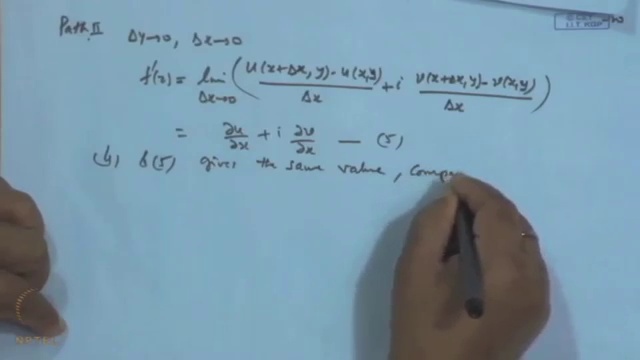 © CET
I.I.T. KGP
Path II Δy→0, Δx→0
f'(z) = lim Δx→0 ( (u(x+Δx, y) - u(x,y))/Δx + i (v(x+Δx, y) - v(x,y))/Δx )
= ∂u/∂x + i ∂v/∂x — (5)
(4) & (5) gives the same value, compa
NPTEL